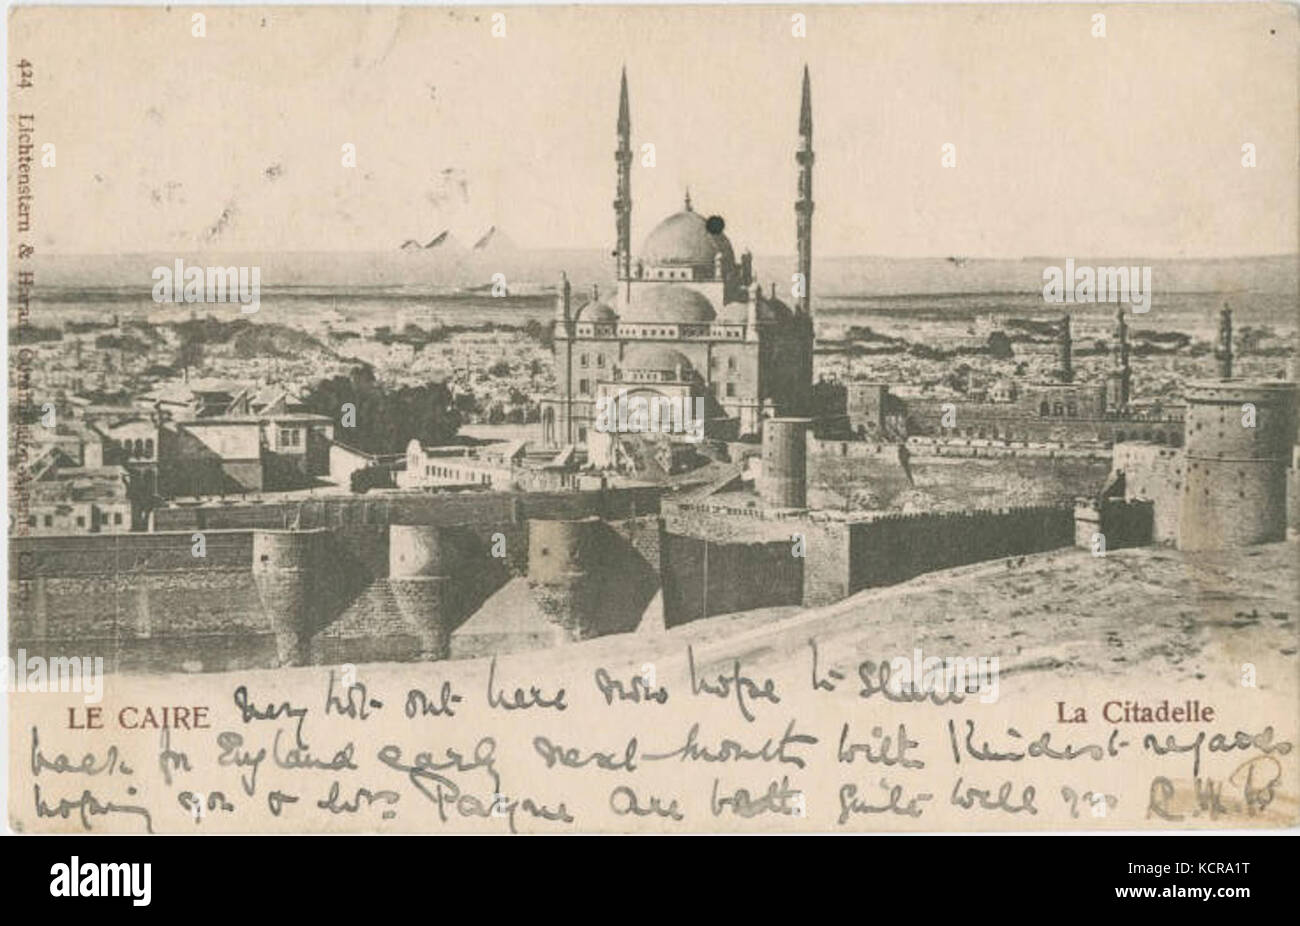 424 Lichtenstern & Harari,
LE CAIRE
La Citadelle
very hot out here now hope to Start
back for England early next month with Kindest regards
hoping you & Mrs Payne are both quite well yrs R. W. P.
alamy
Image ID: KCRA1T
www.alamy.com